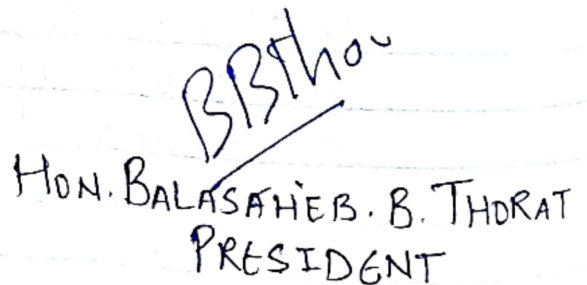 BBTho
HON. BALASAHEB. B. THORAT
PRESIDENT